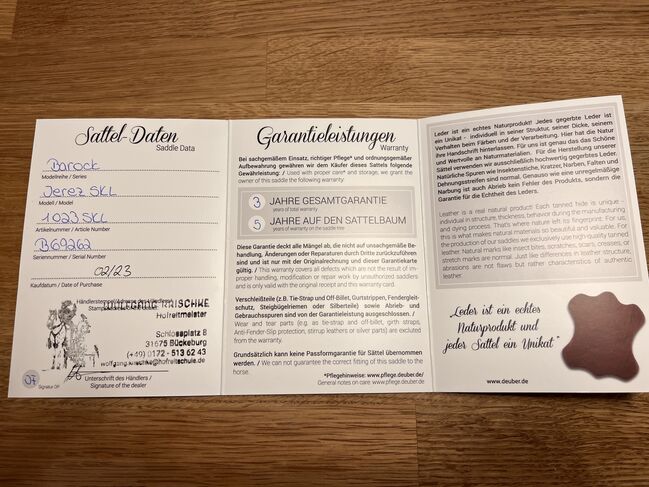 Sattel-Daten
Saddle Data
Barock
Modellreihe / Series
Jerez SKL
Modell / Model
1023 SKL
Artikelnummer / Article Number
B69262
Seriennummer / Serial Number
02/23
Kaufdatum / Date of Purchase
Händlerstempel/Adresse des Händlers
WOLFGANG KRISCHKE
Hofreitmeister
Schlossplatz 8
31675 Bückeburg
(+49) 0172 - 513 62 43
wolfgang.krischke@hofreitschule.de
Unterschrift des Händlers /
Signature of the dealer
Garantieleistungen
Warranty
Bei sachgemäßem Einsatz, richtiger Pflege* und ordnungsgemäßer
Aufbewahrung gewähren wir dem Käufer dieses Sattels folgende
Gewährleistung: / Used with proper care* and storage, we grant the
owner of this saddle the following warranty:
3 JAHRE GESAMTGARANTIE
years of total warranty
5 JAHRE AUF DEN SATTELBAUM
years of warranty on the saddle tree
Diese Garantie deckt alle Mängel ab, die nicht auf unsachgemäße Be-
handlung, Änderungen oder Reparaturen durch Dritte zurückzuführen
sind und ist nur mit der Originalrechnung und dieser Garantiekarte
gültig. / This warranty covers all defects which are not the result of im-
proper handling, modification or repair work by unauthorized saddlers
and is only valid with the original receipt and this warranty card.
Verschleißteile (z.B. Tie-Strap und Off-Billet, Gurtstrippen, Fendergleit-
schutz, Steigbügelriemen oder Silberteile) sowie Abrieb- und
Gebrauchsspuren sind von der Garantieleistung ausgeschlossen. /
Wear and tear parts (e.g. as tie-strap and off-billet, girth straps,
Anti-Fender-Slip protection, stirrup leathers or silver parts) are excluded
from the warranty.
Grundsätzlich kann keine Passformgarantie für Sättel übernommen
werden. / We can not guarantee the correct fitting of this saddle to the
horse.
*Pflegehinweise: www.pflege.deuber.de/
General notes on care: www.pflege.deuber.de
Leder ist ein echtes Naturprodukt! Jedes gegerbte Leder ist
ein Unikat - individuell in seiner Struktur, seiner Dicke, seinem
Verhalten beim Färben und der Verarbeitung. Hier hat die Natur
ihre Handschrift hinterlassen. Für uns ist genau das das Schöne
und Wertvolle an Naturmaterialien. Für die Herstellung unserer
Sättel verwenden wir ausschließlich hochwertig gegerbtes Leder.
Natürliche Spuren wie Insektenstiche, Kratzer, Narben, Falten und
Dehnungsstreifen sind normal. Genauso wie eine unregelmäßige
Narbung ist auch Abrieb kein Fehler des Produkts, sondern die
Garantie für die Echtheit des Leders.
Leather is a real natural product! Each tanned hide is unique -
individual in structure, thickness, behavior during the manufacturing
and dying process. That's where nature left its fingerprint. For us,
this is what makes natural materials so beautiful and valuable. For
the production of our saddles we exclusively use high-quality tanned
leather. Natural marks like insect bites, scratches, scars, creases, or
stretch marks are normal. Just like differences in leather structure,
abrasions are not flaws but rather characteristics of authentic
leather.
„Leder ist ein echtes
Naturprodukt und
jeder Sattel ein Unikat“
www.deuber.de